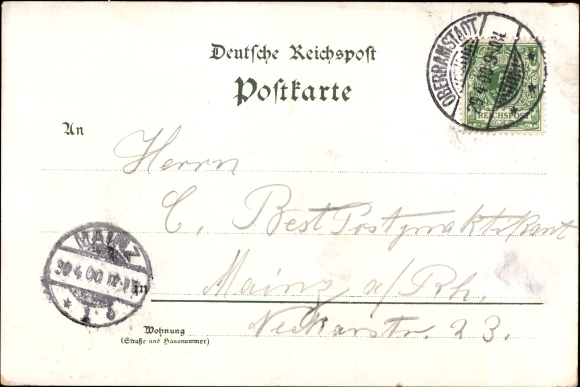 Deutsche Reichspost
Postkarte
OBERRAMSTADT
29.4.00.9-10V.
REICHSPOST
An
Herrn
C. Best Postpraktikant
MAINZ
30 4 00
in Mainz a/Rh.
Wohnung
(Straße und Hausnummer)
Neckarstr. 23.